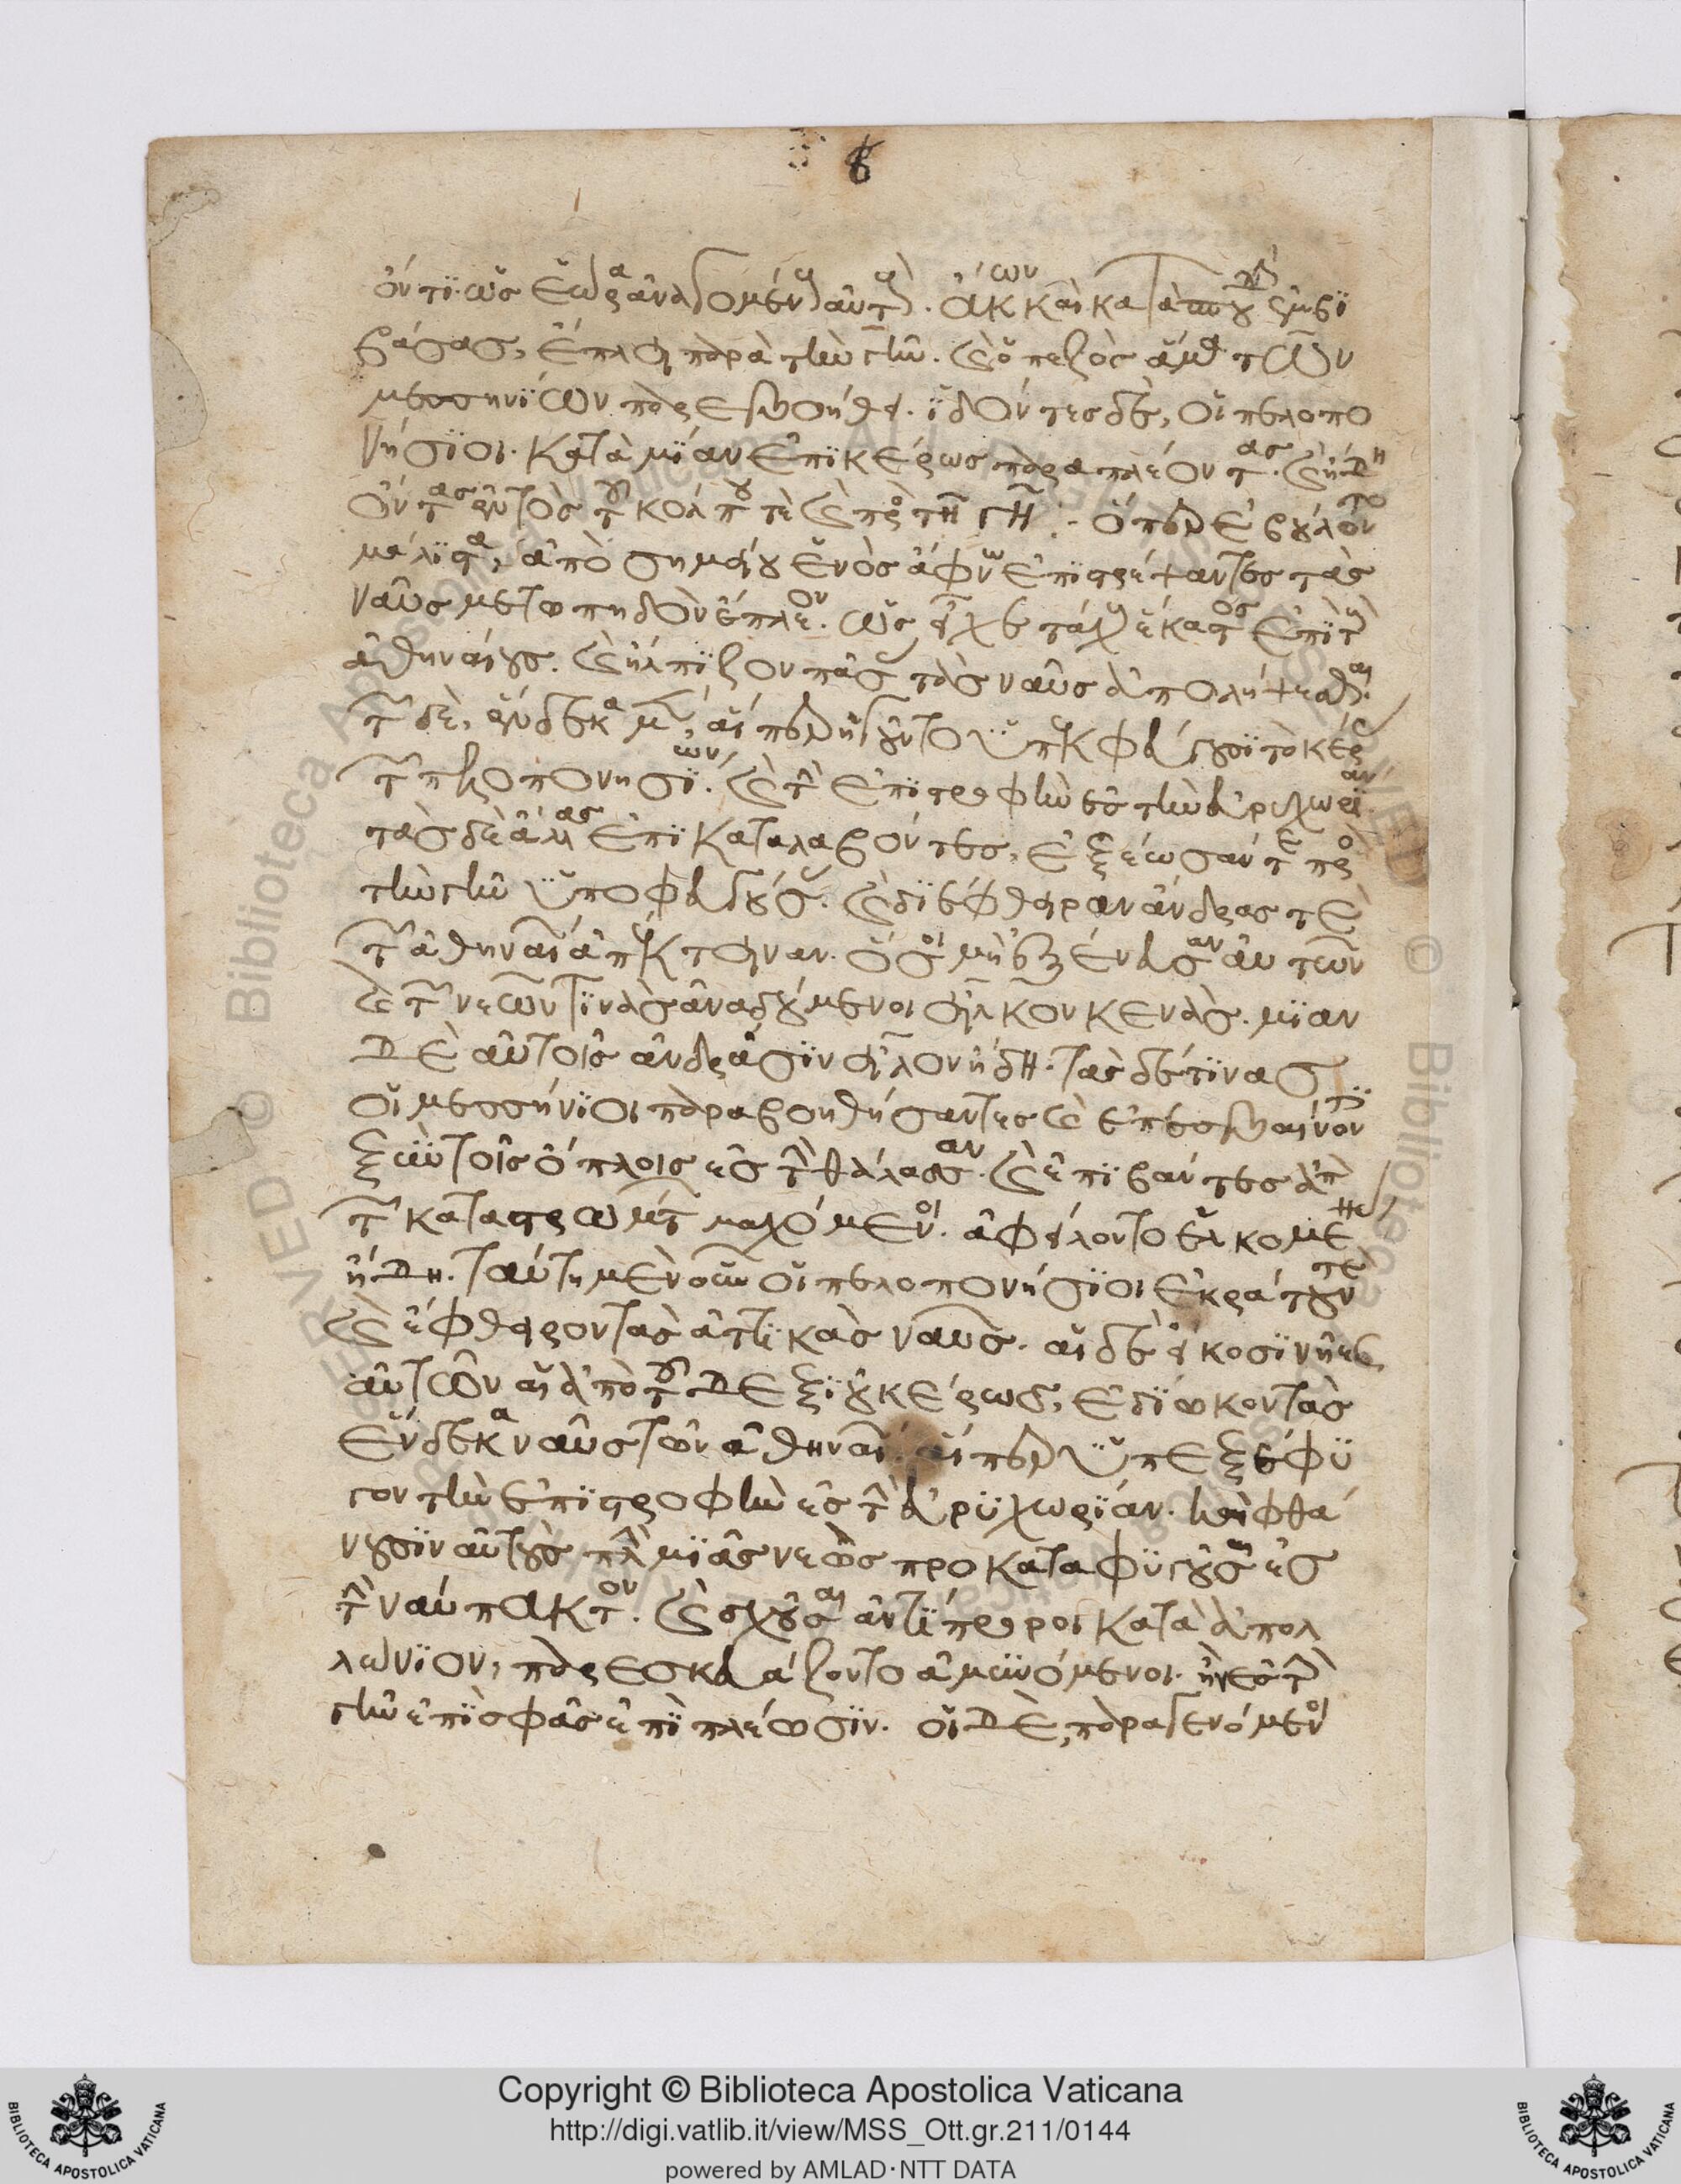 β
όντι· ὡς ἑώρα ἀναγομένους αὐτούς· ἄκων καὶ κατὰ σπουδὴν ἐμβι
βάσας, ἔπλει παρὰ τὴν γῆν. καὶ ὁ πεζὸς ἅμα τῶν
μεσσηνίων παρεβοήθει. ἰδόντες δὲ, οἱ πελοπο
νήσιοι. κατὰ μίαν ἐπὶ κέρως παραπλέοντας. καὶ ἤδη
όντας ἐντὸς τοῦ κόλπου τὲ καὶ πρὸς τῆ γῆ :- ὅπερ ἐβούλοντο
μάλιστα, ἀπὸ σημείου ἑνὸς ἄφνω ἐπιστρέψαντες τὰς
ναῦς μετωπηδὸν ἔπλεον. ὡς εἶχε τάχους ἕκαστος ἐπὶ τοὺς
ἀθηναίους. καὶ ἤλπιζον πάσας τὰς ναῦς ἀπολήψεσθαι.
τῶν δὲ, ἕνδεκα μὲν, αἵπερ ἡγοῦντο ὑπεκφεύγουσι τὸ κέρας
τῶν πελοπονησίων. καὶ τὴν ἐπιστροφὴν ἐς τὴν εὐρυχωρίαν
τὰς δὲ ἄλλας ἐπικαταλαβόντες, ἐξέωσάν τε πρὸς
τὴν γῆν ὑποφευγούσας. καὶ διέφθειραν ἄνδρας τὲ
τῶν ἀθηναίων ἀπέκτειναν. ὅσοι μὴ ἐξένευσαν αὐτῶν
καὶ τῶν νεῶν τινὰς ἀναδούμενοι εἷλκον κενὰς. μίαν
δὲ αὐτοῖς ἀνδράσιν εἷλον ἤδη. τὰς δέ τινας
οἱ μεσσήνιοι παραβοηθήσαντες καὶ ἐπεσβαίνοντες
ξὺν τοῖς ὅπλοις ἐς τὴν θάλασσαν. καὶ ἐπιβάντες ἀπὸ
τῶν καταστρωμάτων μαχόμενοι. ἀφείλοντο ἑλκομένας
ἤδη. ταύτη μὲν οὖν οἱ πελοπονήσιοι ἐκράτουν τε
καὶ ἔφθειρον τὰς ἀττικὰς ναῦς. αἱ δὲ εἴκοσι νῆες
αὐτῶν αἱ ἀπὸ τοῦ δεξιοῦ κέρως, ἐδίωκον τὰς
ἕνδεκα ναῦς τῶν ἀθηναίων αἵπερ ὑπεξέφυ
γον τὴν ἐπιστροφὴν ἐς τὴν εὐρυχωρίαν. καὶ φθά
νουσιν αὐτοὺς πλὴν μιᾶς νεὼς προκαταφυγοῦσαι ἐς
τὴν ναύπακτον. καὶ σχοῦσαι ἀντίπρωροι κατὰ ἀπολ
λώνιον, παρεσκευάζοντο ἀμυνόμενοι. ἢν ἐς τὴν
γῆν ἐπὶ σφᾶς ἐπιπλέωσιν. οἱ δὲ, παραγενόμενοι
Copyright © Biblioteca Apostolica Vaticana
http://digi.vatlib.it/view/MSS_Ott.gr.211/0144
powered by AMLAD·NTT DATA
BIBLIOTECA APOSTOLICA VATICANA
BIBLIOTECA APOSTOLICA VATICANA